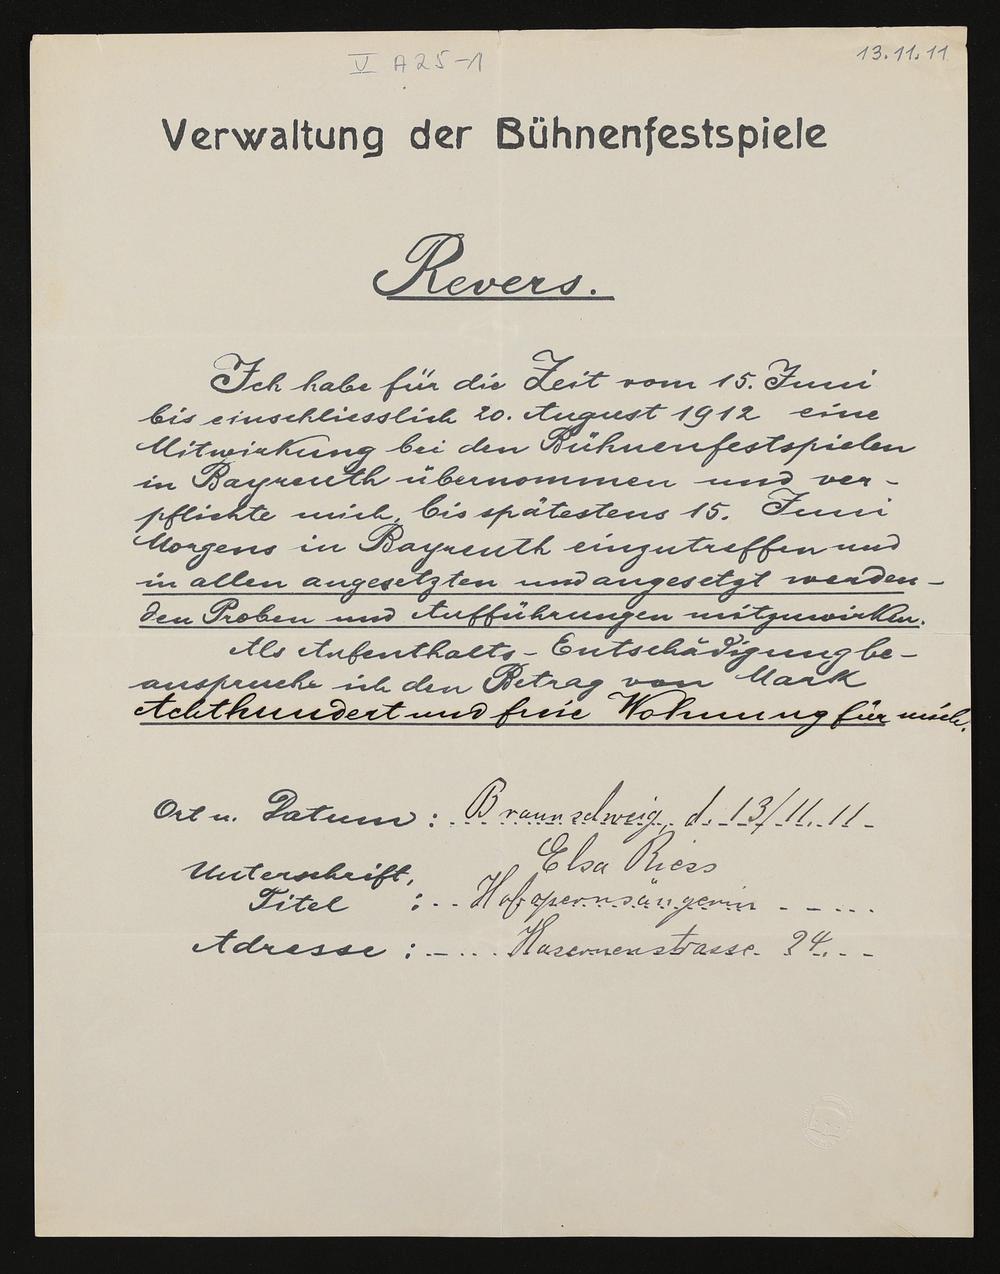 V A25-1
13.11.11
Verwaltung der Bühnenfestspiele
Revers.
Ich habe für die Zeit vom 15. Juni
bis einschliesslich 20. August 1912 eine
Mitwirkung bei den Bühnenfestspielen
in Bayreuth übernommen und ver-
pflichte mich, bis spätestens 15. Juni
Morgens in Bayreuth einzutreffen und
in allen angesetzten und angesetzt werden-
den Proben und Aufführungen mitzuwirken.
Als Aufenthalts-Entschädigung be-
anspruche ich den Betrag von Mark
Achthundert und freie Wohnung für mich.
Ort u. Datum: Braunschweig, d. 13/11.11
Elsa Riess
Unterschrift,
Titel : Hofopernsängerin
Adresse: Kasernenstrasse 24.